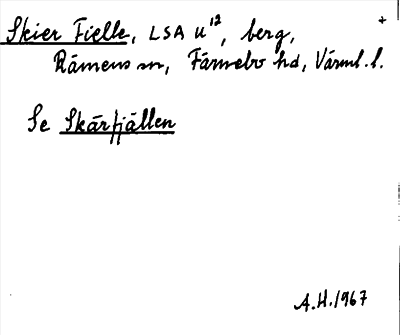 Skier Fielle, LSA U¹², berg, +
Rämens sn, Färnebo hd, Värml. l.
Se Skärfjällen
A.H. 1967